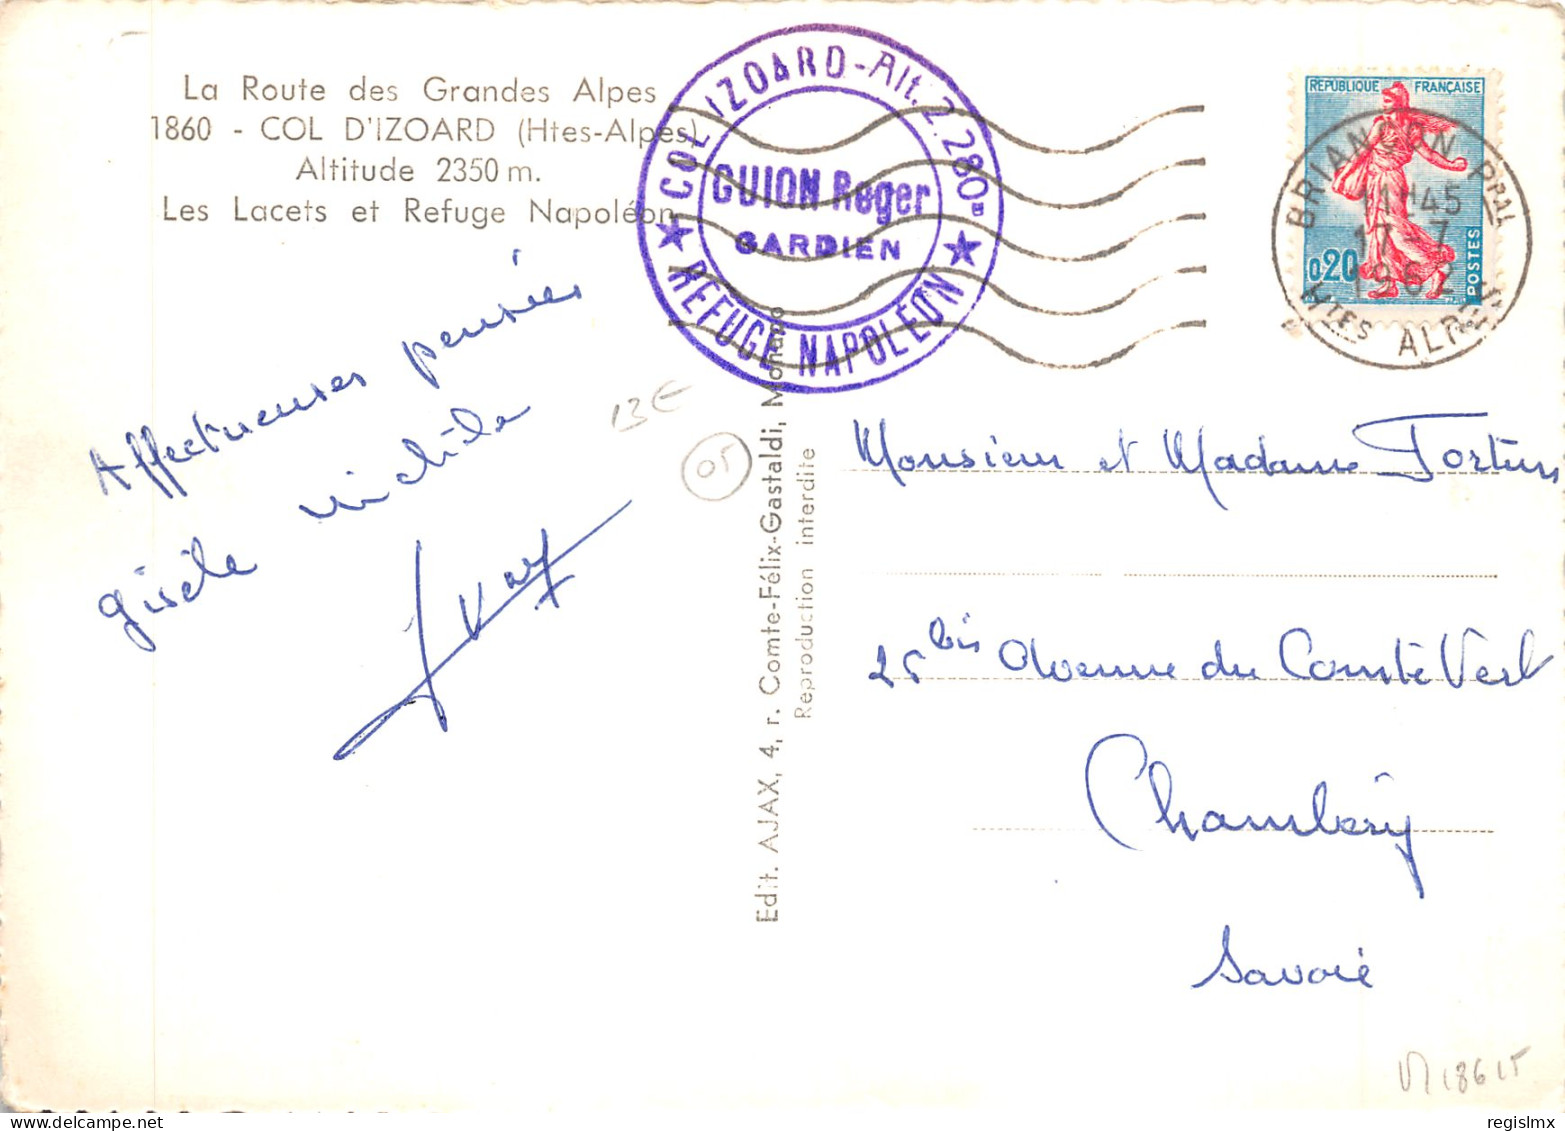 La Route des Grandes Alpes
1860 - COL D'IZOARD (Htes-Alpes)
Altitude 2350 m.
Les Lacets et Refuge Napoléon
COL IZOARD - Alt. 2.280m
GUION Roger
GARDIEN
REFUGE NAPOLEON
RÉPUBLIQUE FRANÇAISE
0,20
POSTES
BRIANÇON PPAL
11H45
17 - 7
1962
HTES ALPES
Affectueuses pensées
gisèle
13€
05
Edit. AJAX, 4, r. Comte-Félix-Gastaldi, Monaco
Reproduction interdite
Monsieur et Madame
25 bis Avenue du Comte Vert
Chambéry
Savoie
18615
regislmx